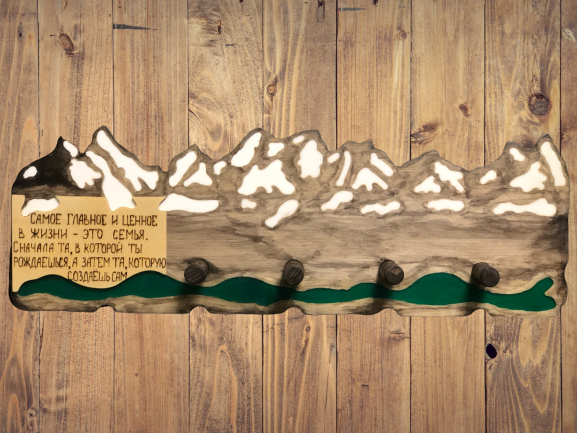 САМОЕ ГЛАВНОЕ И ЦЕННОЕ
В ЖИЗНИ - ЭТО СЕМЬЯ.
СНАЧАЛА ТА, В КОТОРОЙ ТЫ
РОЖДАЕШЬСЯ, А ЗАТЕМ ТА, КОТОРУЮ
СОЗДАЁШЬ САМ